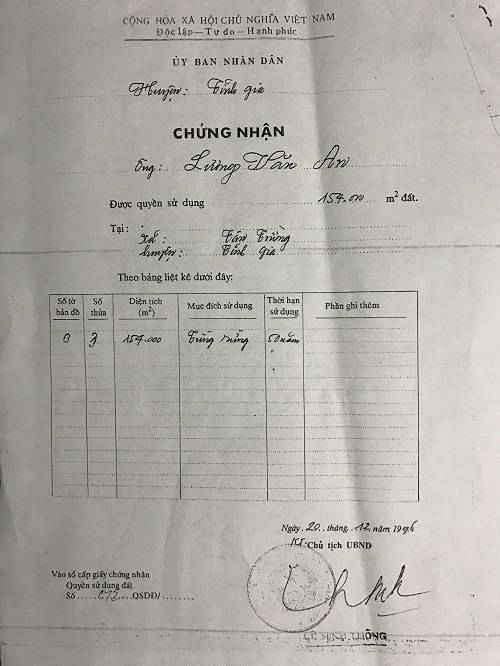 CỘNG HÒA XÃ HỘI CHỦ NGHĨA VIỆT NAM
Độc lập — Tự do — Hạnh phúc
ỦY BAN NHÂN DÂN
Huyện: Tĩnh gia
CHỨNG NHẬN
Ông: Lường Văn An
Được quyền sử dụng 154.000 m² đất.
Tại:
Xã: Tân Trường
huyện: Tĩnh Gia
Theo bảng liệt kê dưới đây:
Số tờ bản đồ Số thửa Diện tích (m²) Mục đích sử dụng Thời hạn sử dụng Phần ghi thêm
0 3 154.000 Trồng rừng 50 năm
Ngày 20. tháng. 12. năm 1996
KT. Chủ tịch UBND
Vào sổ cấp giấy chứng nhận
Quyền sử dụng đất
Số 073 QSDĐ/